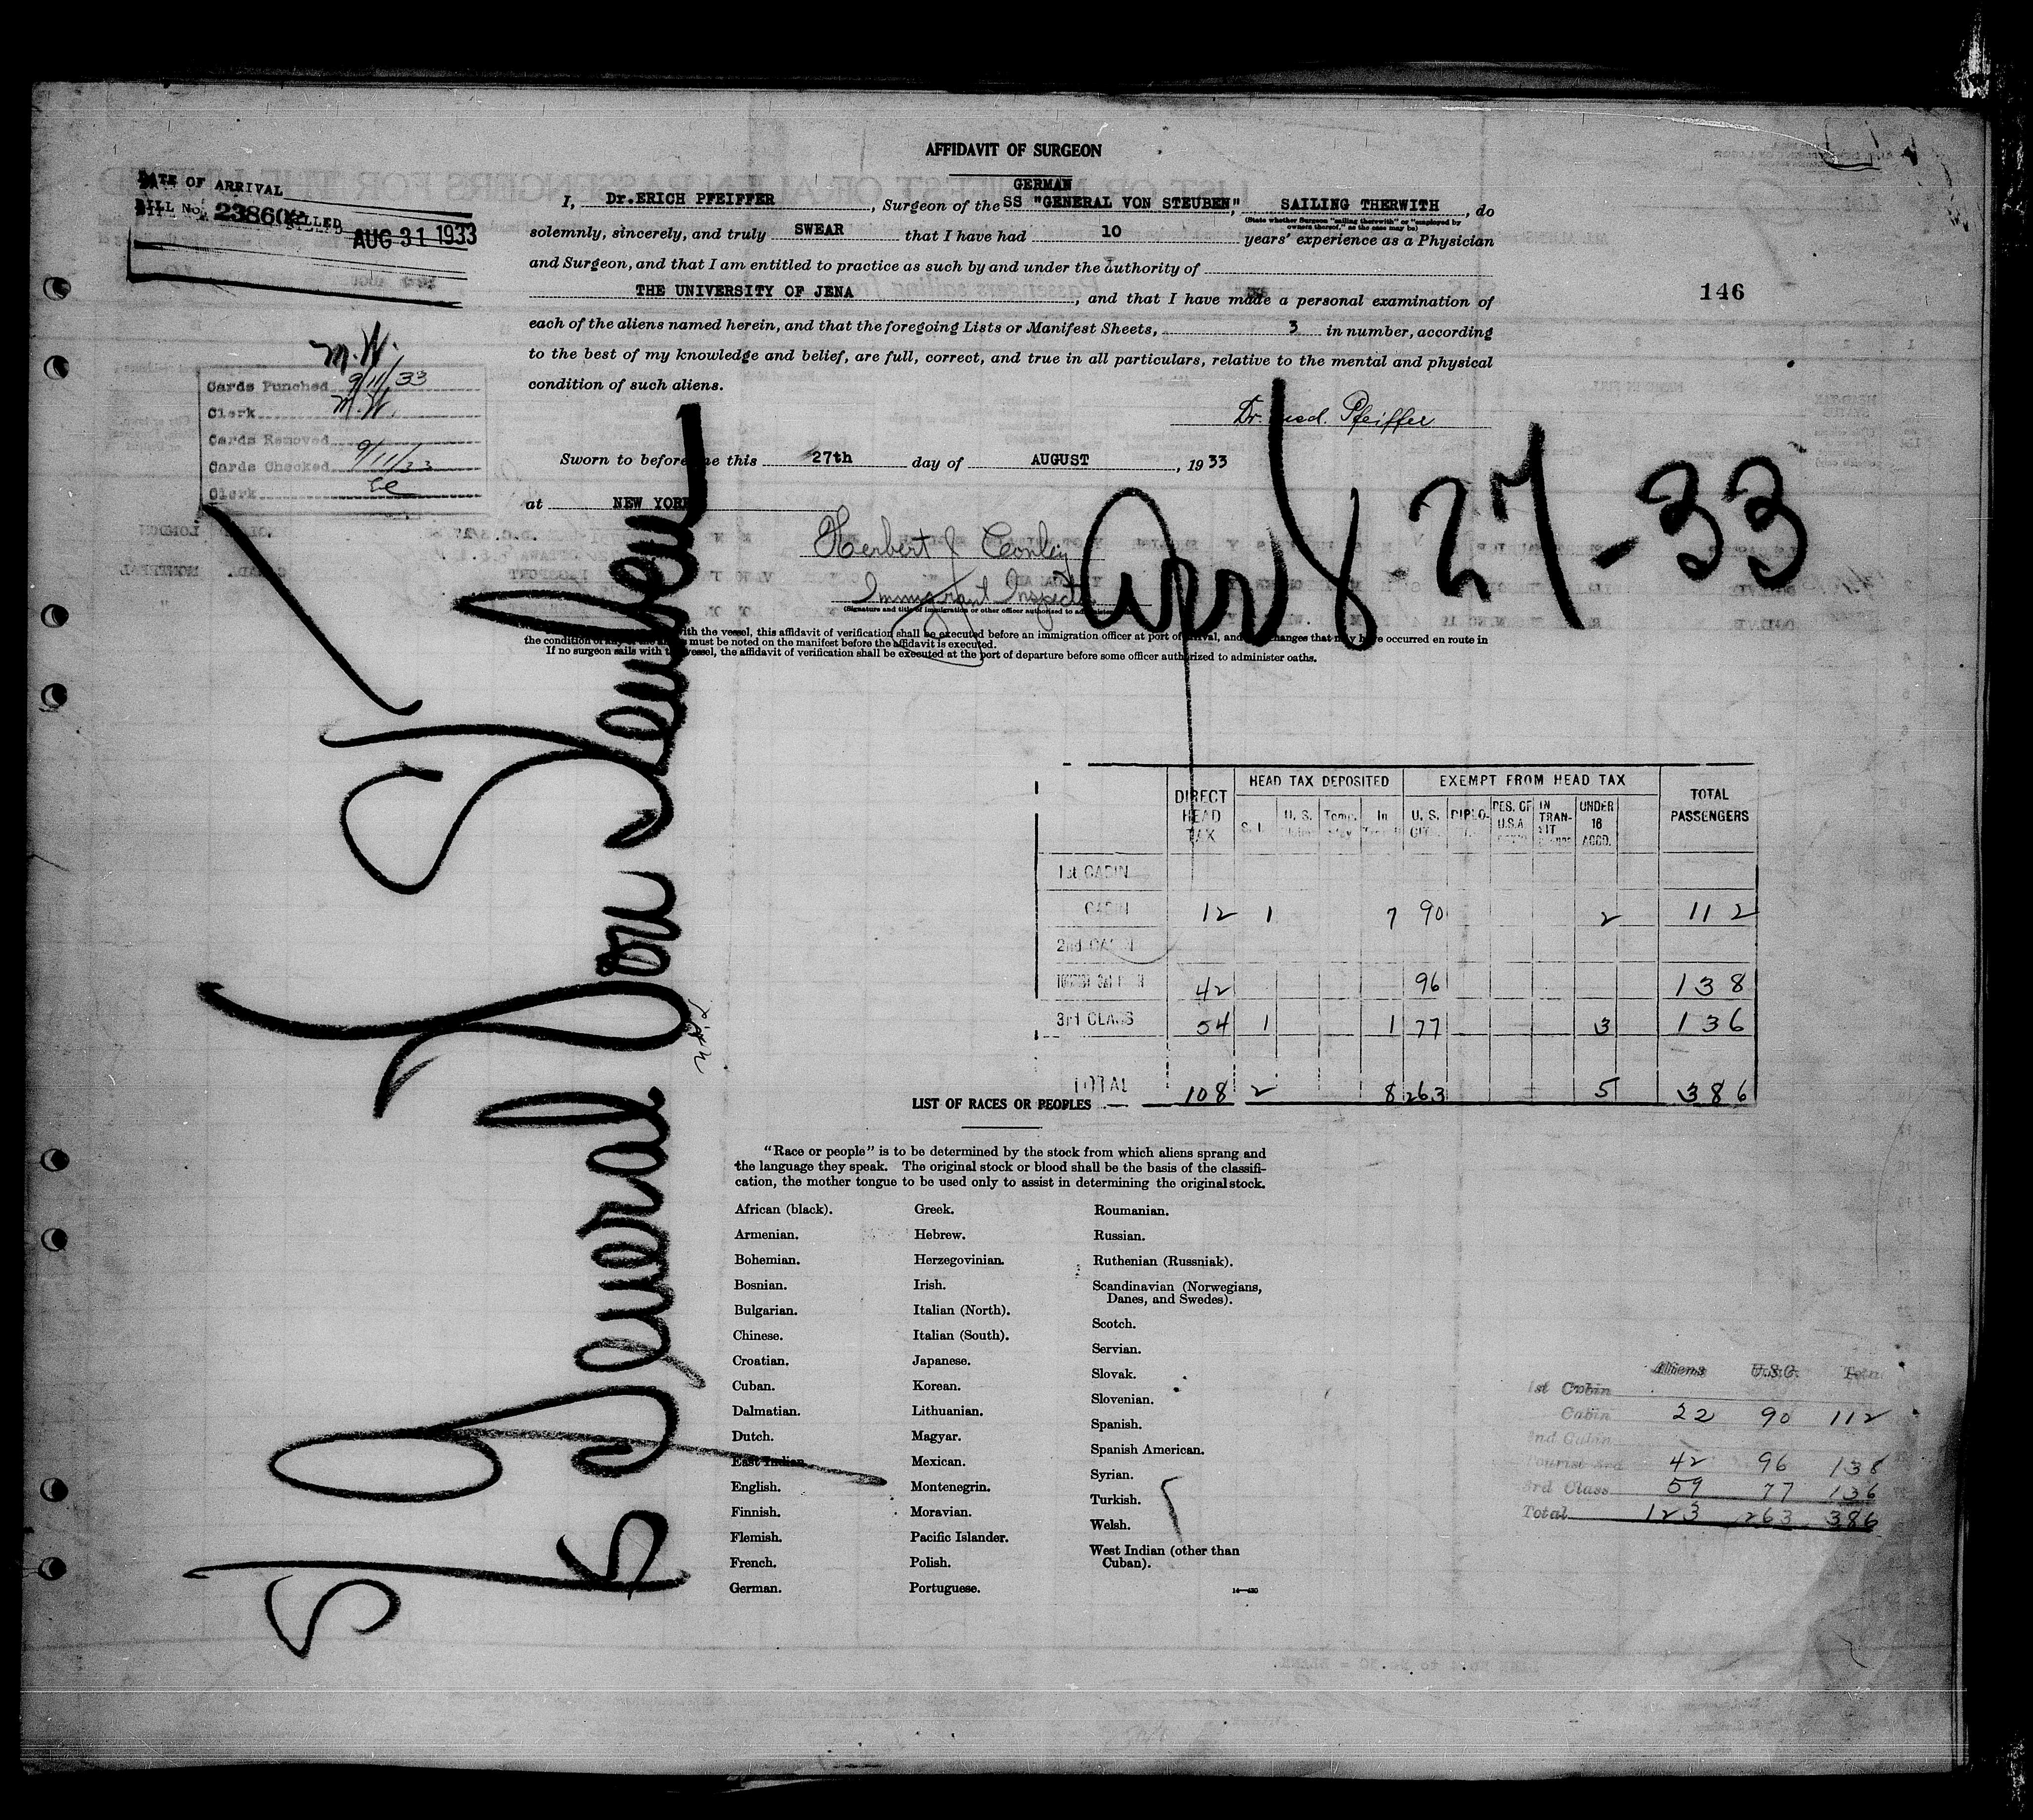 AFFIDAVIT OF SURGEON
DATE OF ARRIVAL
BILL No. 23860 BILLED AUG 31 1933
GERMAN
I, Dr. ERICH PFEIFFER, Surgeon of the SS "GENERAL VON STEUBEN", SAILING THERWITH, do
(State whether Surgeon "sailing therewith" or "employed by owners thereof," as the case may be)
solemnly, sincerely, and truly SWEAR that I have had 10 years' experience as a Physician
and Surgeon, and that I am entitled to practice as such by and under the authority of
THE UNIVERSITY OF JENA, and that I have made a personal examination of
146
each of the aliens named herein, and that the foregoing Lists or Manifest Sheets, 3 in number, according
to the best of my knowledge and belief, are full, correct, and true in all particulars, relative to the mental and physical
condition of such aliens.
M.W.
Cards Punched 9/11/33
Clerk M.W.
Cards Removed
Cards Checked 9/11/33
Clerk
Dr. med. Pfeiffer
Sworn to before me this 27th day of AUGUST, 1933
at NEW YORK
Herbert J Conley
Immigrant Inspector
27-33
(Signature and title of immigration or other officer authorized to administer
with the vessel, this affidavit of verification shall be executed before an immigration officer at port of arrival, and changes that may have occurred en route in
the condition of must be noted on the manifest before the affidavit is executed.
If no surgeon sails with the vessel, the affidavit of verification shall be executed at the port of departure before some officer authorized to administer oaths.
SS General Von Steuben
DIRECT HEAD TAX HEAD TAX DEPOSITED EXEMPT FROM HEAD TAX TOTAL PASSENGERS
S. I. U. S. Temp. In U. S. DIPLO- RES. OF U.S.A. IN TRANSIT UNDER 16 ACCD.
1st CABIN
CABIN 12 1 7 90 2 112
2nd CABIN
TOURIST 3rd 42 96 138
3rd CLASS 54 1 1 77 3 136
TOTAL 108 2 8 263 5 386
LIST OF RACES OR PEOPLES
"Race or people" is to be determined by the stock from which aliens sprang and
the language they speak. The original stock or blood shall be the basis of the classifi-
cation, the mother tongue to be used only to assist in determining the original stock.
African (black).
Armenian.
Bohemian.
Bosnian.
Bulgarian.
Chinese.
Croatian.
Cuban.
Dalmatian.
Dutch.
East Indian.
English.
Finnish.
Flemish.
French.
German.
Greek.
Hebrew.
Herzegovinian.
Irish.
Italian (North).
Italian (South).
Japanese.
Korean.
Lithuanian.
Magyar.
Mexican.
Montenegrin.
Moravian.
Pacific Islander.
Polish.
Portuguese.
Roumanian.
Russian.
Ruthenian (Russniak).
Scandinavian (Norwegians,
Danes, and Swedes).
Scotch.
Servian.
Slovak.
Slovenian.
Spanish.
Spanish American.
Syrian.
Turkish.
Welsh.
West Indian (other than
Cuban).
14—430
Aliens U.S.C. Total
1st Cabin
Cabin 22 90 112
2nd Cabin
Tourist 3rd 42 96 138
3rd Class 59 77 136
Total 123 263 386